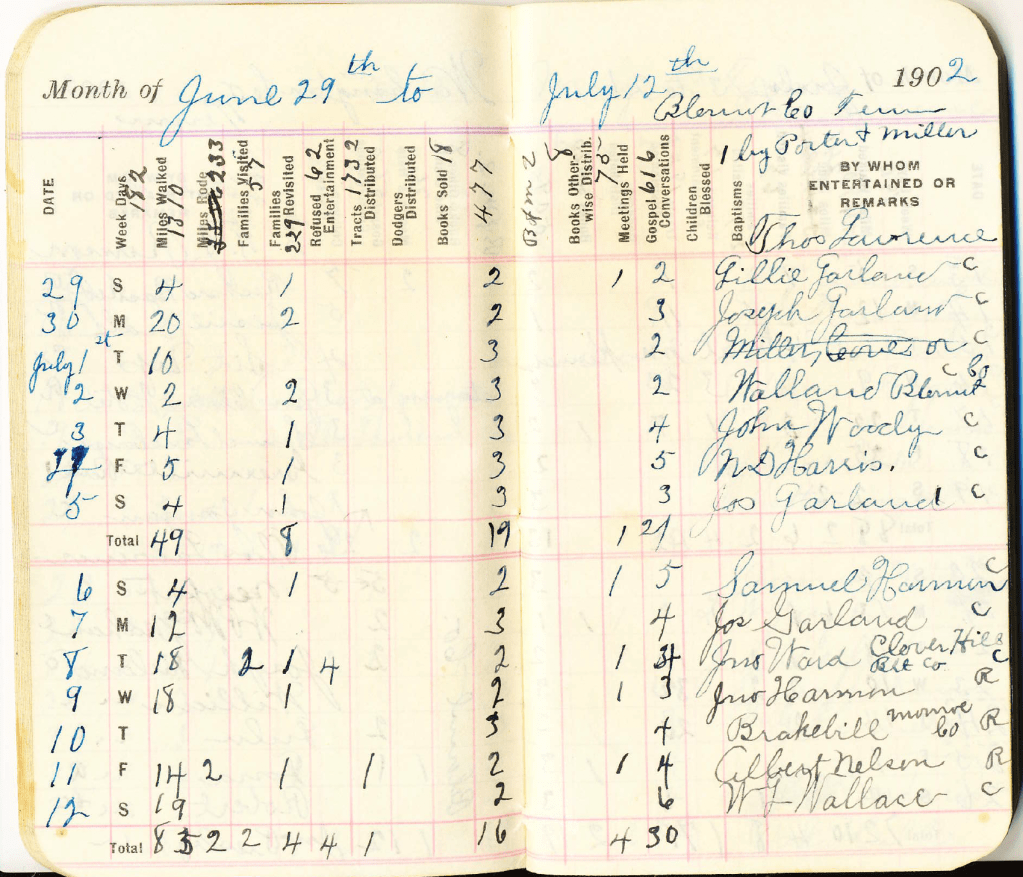 Month of June 29th to July 12th 1902
Blount Co Tenn
1 by Porter & Miller
DATE
Week Days 182
Miles Walked 1310
Miles Rode 233
Families Visited 57
Families Revisited 229
Refused Entertainment 62
Tracts Distributed 1732
Dodgers Distributed
Books Sold 18
477
B of M 2
Books Otherwise Distrib. 8
Meetings Held 78
Gospel Conversations 616
Children Blessed
Baptisms
BY WHOM ENTERTAINED OR REMARKS
Thos Lawrence
29 S 4 1 2 1 2 Gillie Garland C
30 M 20 2 2 3 Joseph Garland C
July 1st T 10 3 2 Miller, C
2 W 2 2 3 2 Walland Blount Co
3 T 4 1 3 4 John Woody C
4 F 5 1 3 5 N D Harris. C
5 S 4 1 3 3 Jos Garland C
Total 49 8 19 1 21
6 S 4 1 2 1 5 Samuel Harmon C
7 M 12 3 4 Jos Garland C
8 T 18 2 1 4 2 1 4 Jno Ward Clover Hill Blt Co. C
9 W 18 1 2 1 3 Jno Harmon R
10 T 3 4 Brakebill Monroe Co R
11 F 14 2 1 1 2 1 4 Albert Nelson R
12 S 19 2 6 W L Wallace C
Total 85 2 2 4 4 1 16 4 30